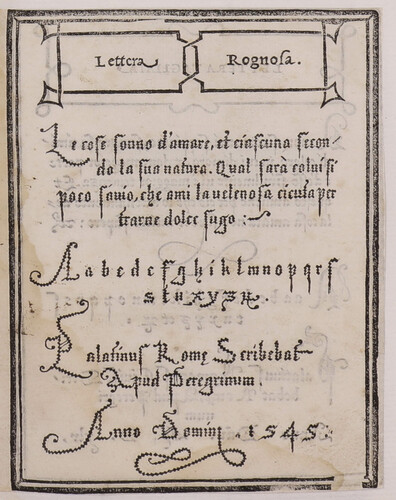 Lettera Rognosa.
Le cose sonno d'amare, et ciascuna secon-
do la sua natura. Qual sarà colui sì
poco savio, che ami la velenosa cicuta per
trarne dolce sugo :~
A a b c d e f g h i k l m n o p q r s
s t u x y z
Palatinus Romę Scribebat
Apud Peregrinum.
Anno Domini .1545.